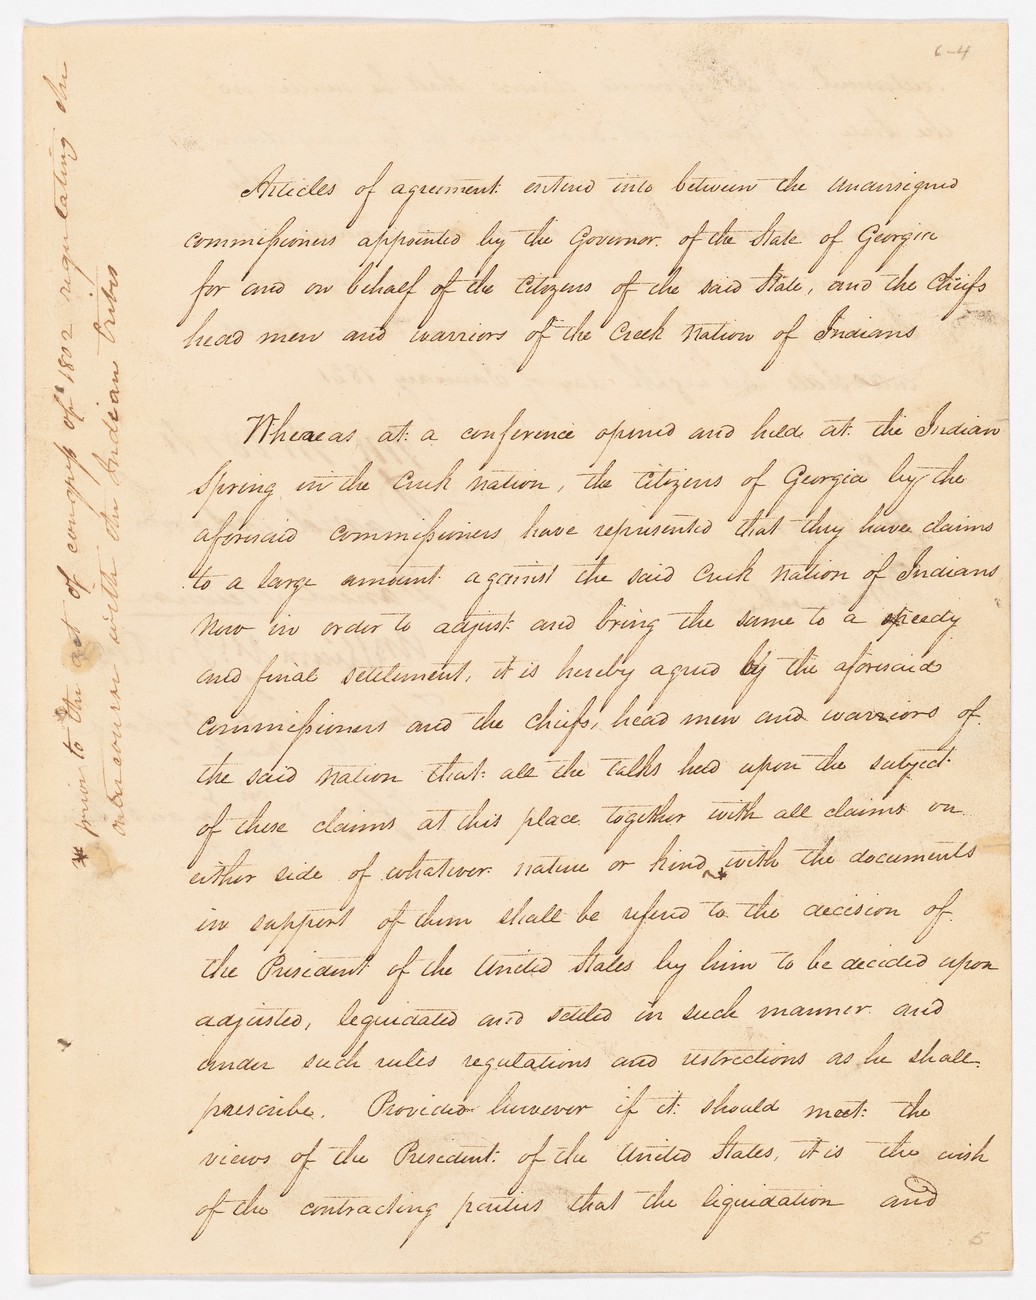 6-4
Articles of agreement entered into between the undersigned
commissioners appointed by the Governor of the State of Georgia
for and on behalf of the Citizens of the said State, and the Chiefs
head men and warriors of the Creek Nation of Indians
Whereas at a conference opened and held at the Indian
Spring in the Creek Nation, the Citizens of Georgia by the
aforesaid commissioners have represented that they have claims
to a large amount against the said Creek Nation of Indians
Now in order to adjust and bring the same to a speedy
and final settlement, it is hereby agreed by the aforesaid
commissioners and the Chiefs, head men and warriors of
the said Nation that all the talks had upon the subject
of these claims at this place together with all claims on
either side of whatever nature or kind * with the documents
in support of them shall be refered to the decision of
the President of the United States by him to be decided upon
adjusted, liquidated and settled in such manner and
under such rules regulations and restrictions as he shall
prescribe. Provided however if it should meet the
views of the President of the United States, it is the wish
of the contracting parties that the liquidation and
5
* prior to the act of congress of 1802 regulating the
intercourse with the Indian Tribes